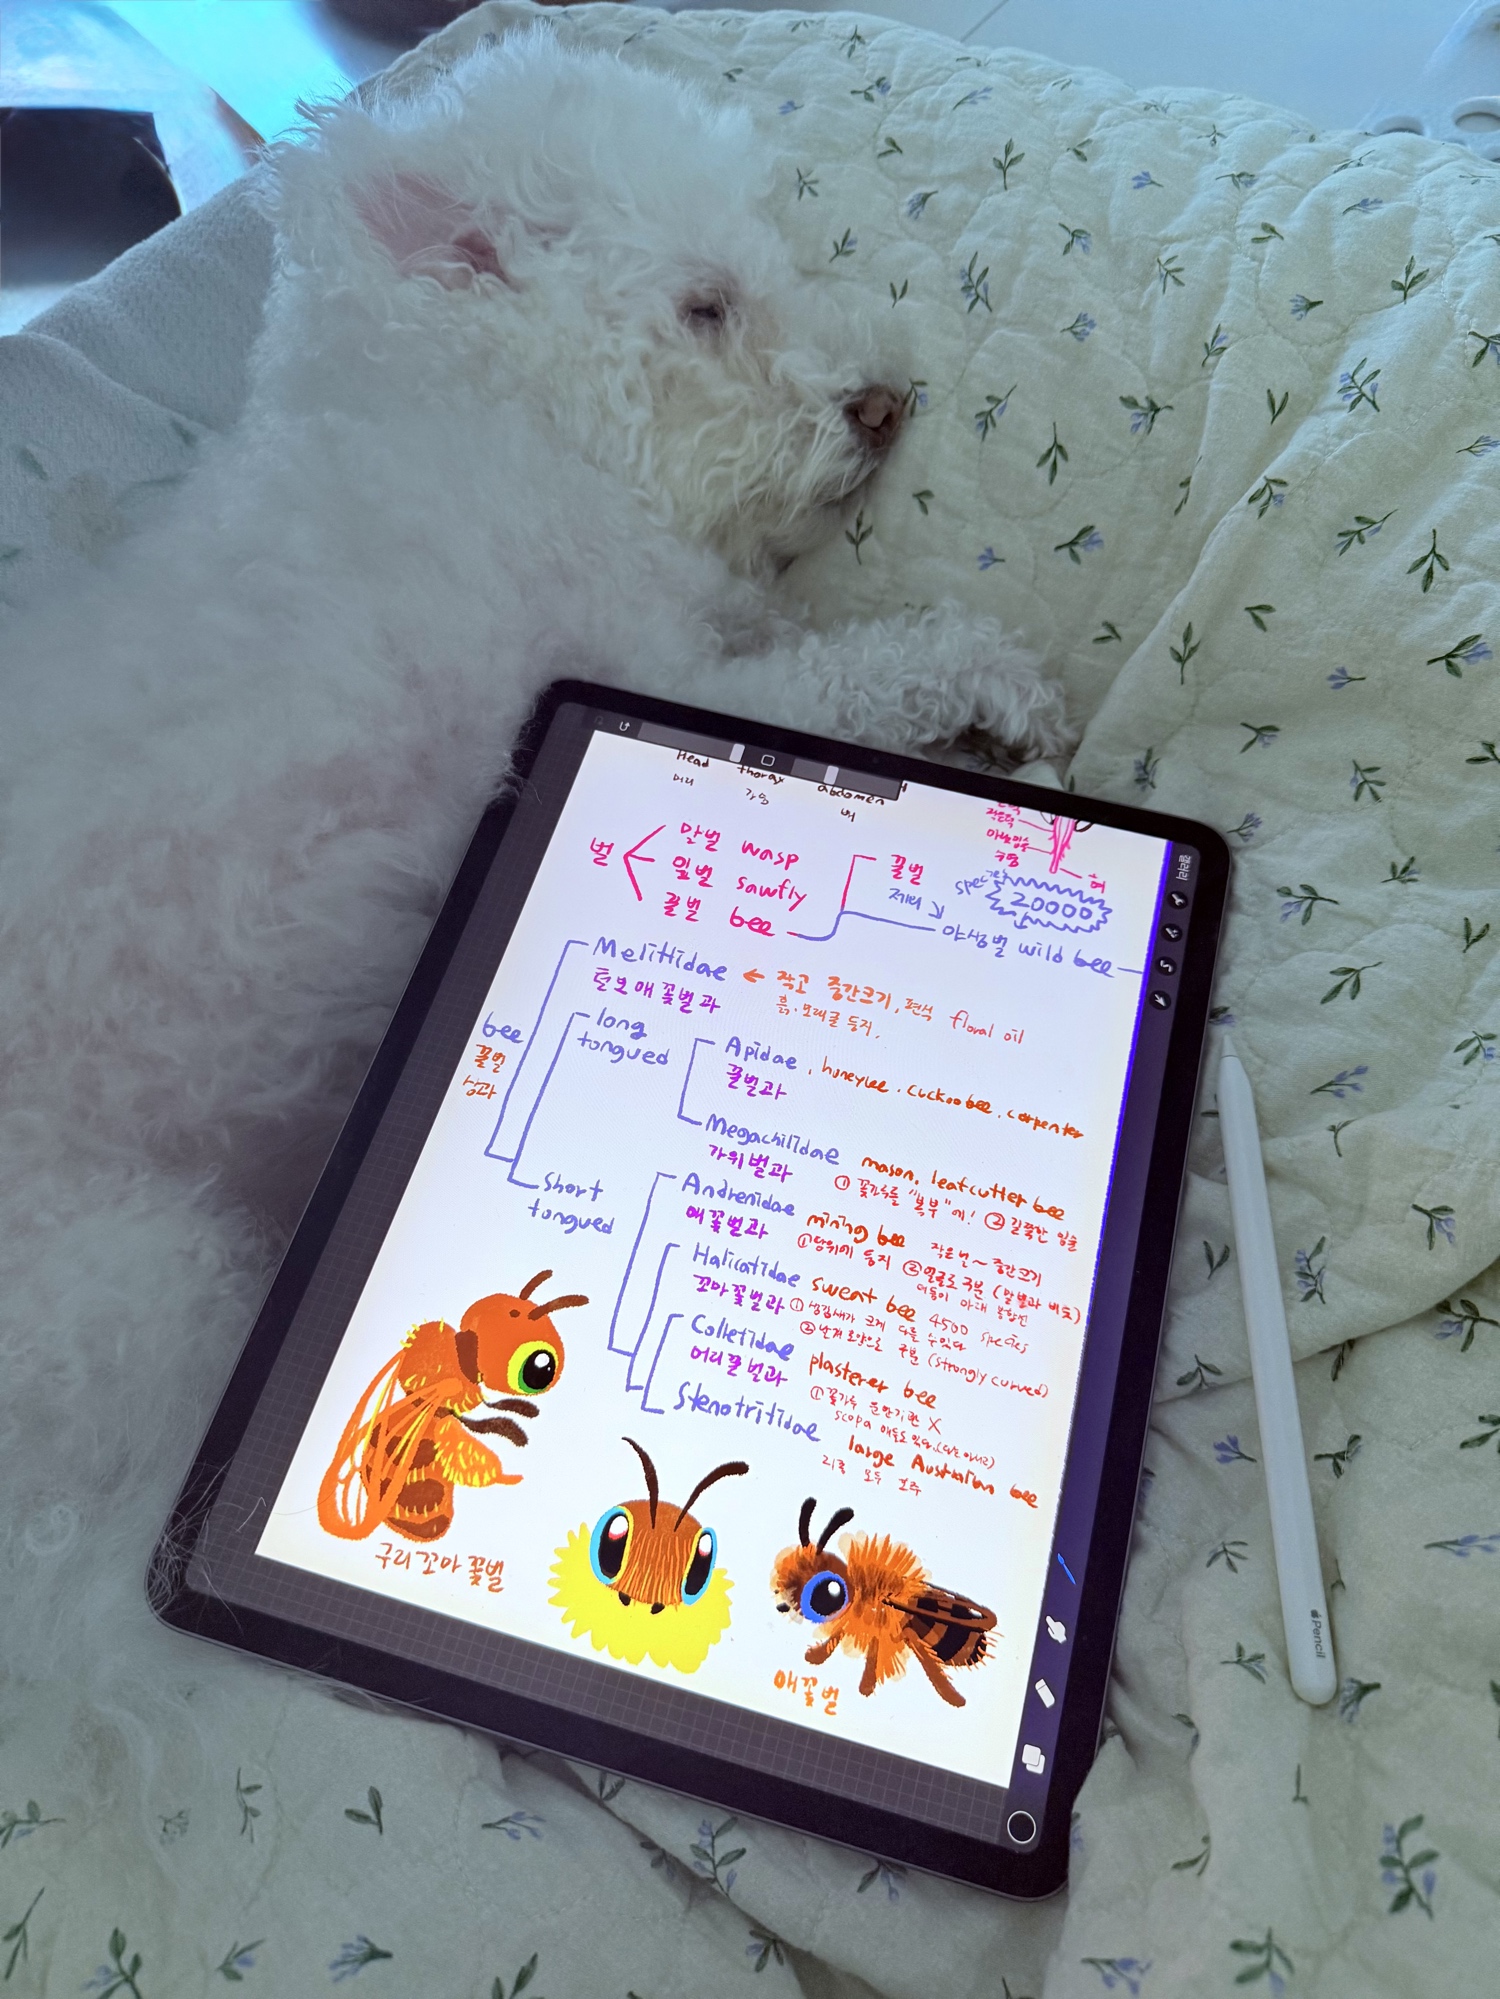 Head thorax abdomen
머리 가슴 배
벌
말벌 wasp
잎벌 sawfly
꿀벌 bee
꿀벌
제외
species 20000
야생벌 wild bee
혀
갤러리
Melittidae ← 작고 중간크기, 편식 floral oil
털보애꽃벌과 흙·모래굴 둥지.
bee
꿀벌
상과
long
tongued
Apidae, honeybee, cuckoo bee, carpenter
꿀벌과
Megachilidae mason, leafcutter bee
가위벌과 ① 꽃가루를 "복부"에! ② 길쭉한 입술
short
tongued
Andrenidae mining bee 작은 번~중간크기
애꽃벌과 ① 땅위에 둥지 ② 얼굴로 구분 (말벌과 비슷)
더듬이 아래 봉합선
Halicatidae sweat bee 4500 species
꼬마꽃벌과 ① 생김새가 크게 다를 수 있다
② 날개 모양으로 구분 (strongly curved)
Colletidae plasterer bee
머리꿀벌과 ① 꽃가루 운반기관 X
scopa
Stenotritidae large Australian bee
모두 호주
구리꼬마꽃벌
애꽃벌
Pencil